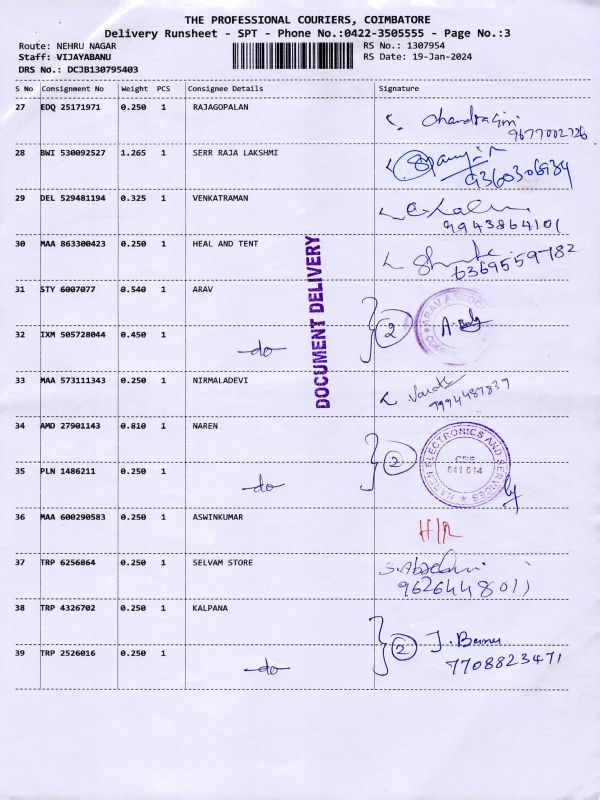 THE PROFESSIONAL COURIERS, COIMBATORE
Delivery Runsheet - SPT - Phone No.:0422-3505555 - Page No.:3
Route: NEHRU NAGAR RS No.: 1307954
Staff: VIJAYABANU RS Date: 19-Jan-2024
DRS No.: DCJB130795403
S No Consignment No Weight PCS Consignee Details Signature
27 EDQ 25171971 0.250 1 RAJAGOPALAN
9677002726
28 BWI 530092527 1.265 1 SERR RAJA LAKSHMI
9360306934
29 DEL 529481194 0.325 1 VENKATRAMAN
9943864101
30 MAA 863300423 0.250 1 HEAL AND TENT
6369559782
DOCUMENT DELIVERY
31 STY 6007077 0.540 1 ARAV 2
32 IXM 505728044 0.450 1 -do-
33 MAA 573111343 0.250 1 NIRMALADEVI
7994487837
34 AMD 27901143 0.810 1 NAREN 2
ELECTRONICS AND SERVICES
CBE
641 014
35 PLN 1486211 0.250 1 -do-
36 MAA 600290583 0.250 1 ASWINKUMAR H/R
37 TRP 6256864 0.250 1 SELVAM STORE
9626448011
38 TRP 4326702 0.250 1 KALPANA 2
39 TRP 2526016 0.250 1 -do- 7708823471